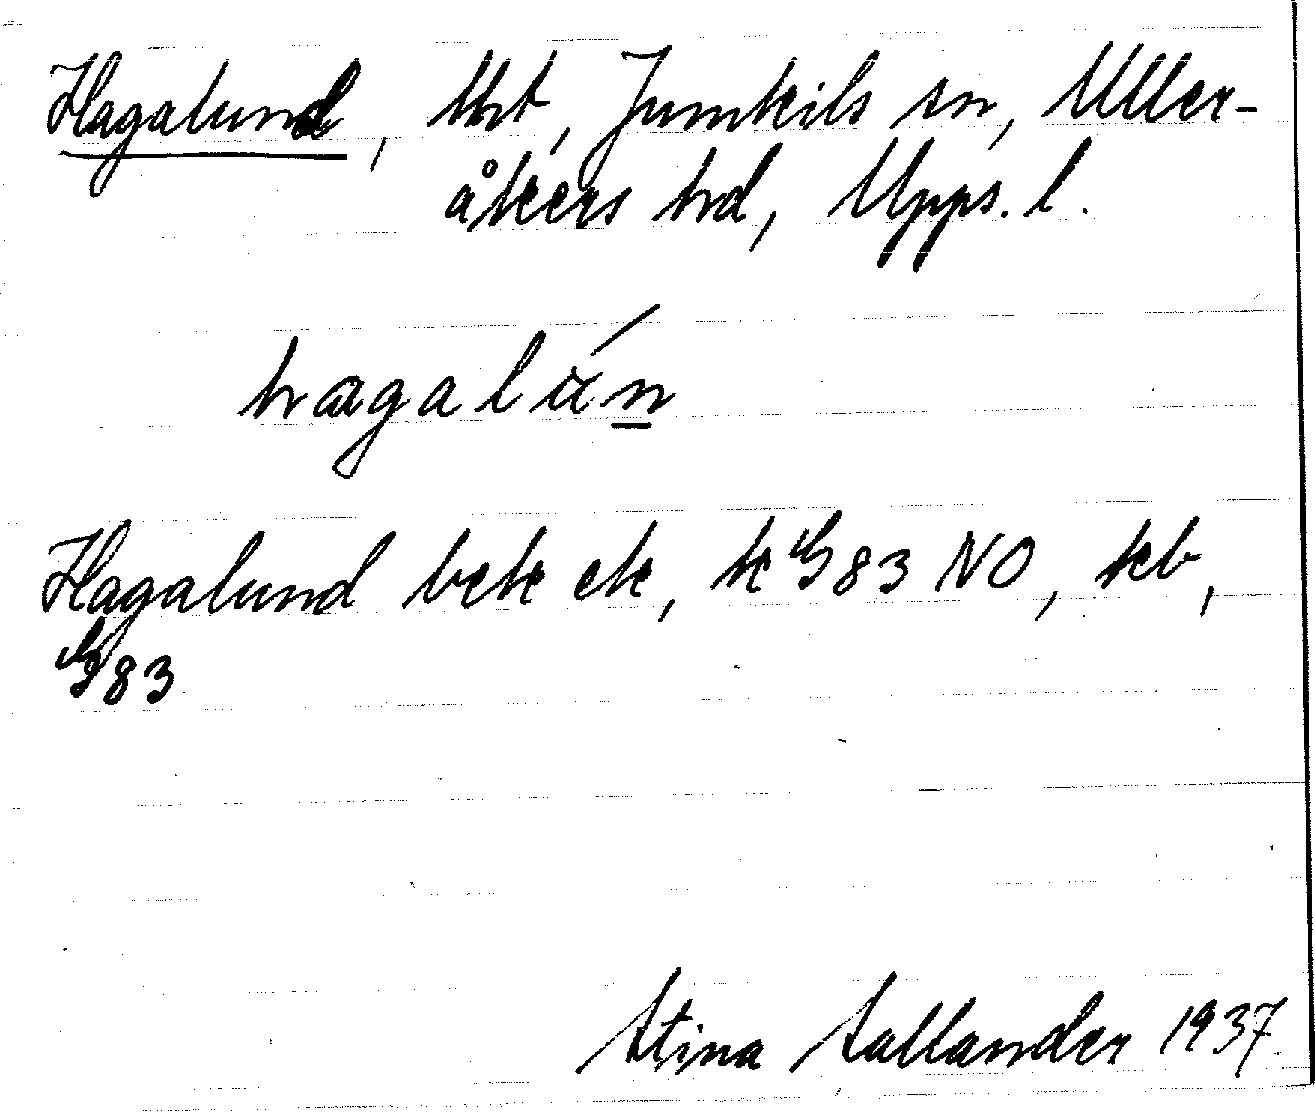 Hagalund, tht, Jumkils sn, Uller-
åkers hd, Upps. l.
hagalán
Hagalund bek ek, k G83 NO, kb,
G83
Stina Sallander 1937